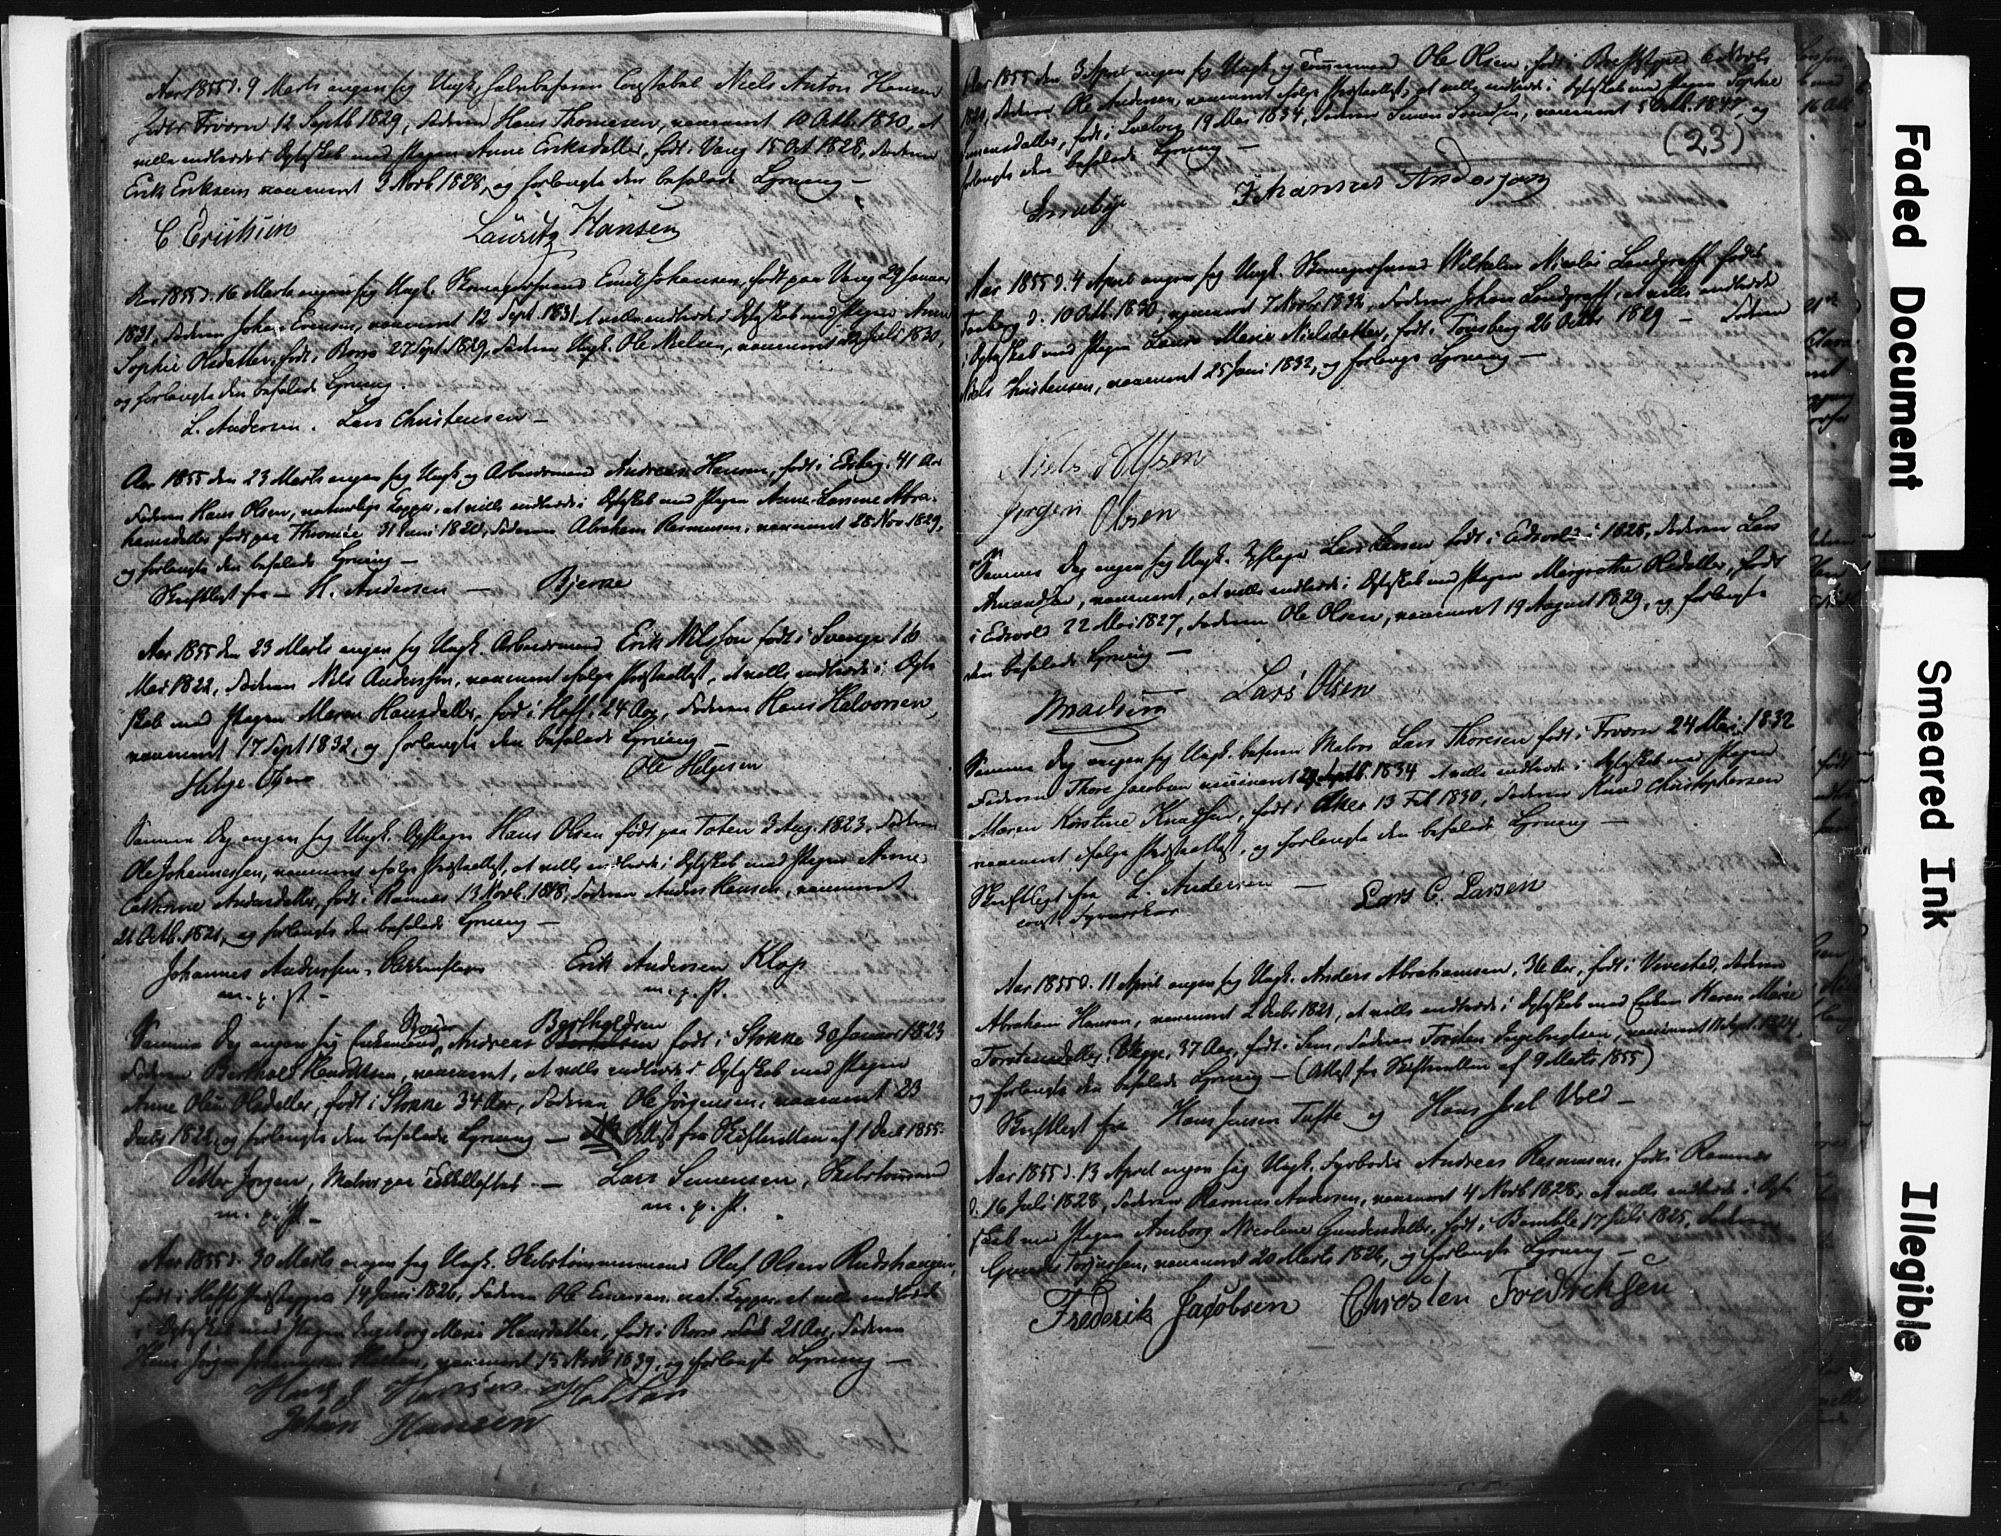 Aar 1855 d. 9 Marts angav sig Ungk. Niels Anton Hansen
født i Frværn 12 Septb 1829, Faderen Hans Thomesen, vaccineret 10 Octb. 1830, at
ville indtræde i Egteskab med Pigen Anne Eriksdatter, født i Vang 15 Oct 1828, Faderen
Erik Eriksen vaccineret 3 Novb 1828, og forlangte den befalede Lysning —
Lauritz Hansen
Aar 1855 d. 16 Marts angav sig Ungk. Skomagersvend Emil Johansen, født paa Vang 29 Januar
1831, Faderen Johan Evensen, vaccineret 12 Sept. 1831 at ville indtræde i Egteskab med Pigen Anne
Sophie Olsdatter, født i Borre 27 Sept 1829, Faderen Ungk. Ole Nielsen, vaccineret Juli 1830,
og forlangte den befalede Lysning.
L. Andersen. Lars Christensen —
Aar 1855 den 23 Marts angav sig Ungk. og Arbeidsmand Andreas Hansen, født i 41 Aar
Faderen Hans Olsen, naturlige Kopper, at ville indtræde i Egteskab med Pigen Anne Abra-
hamsdatter født paa Juni 1820, Faderen Abraham Rasmussen, vaccineret 28 Nov 1829,
og forlangte den befalede Lysning —
Skriftligt fra — H. Andersen — Bjerke
Aar 1855 den 23 Marts angav sig Ungk. Arbeidsmand Erik Nilsson født i Sverige 16
Mai 1822, Faderen Nils Anderssen, vaccineret ifølge Præsteattest, at ville indtræde i Egte
skab med Pigen Maren Hansdatter, fød i Hoff, 24 Aar, Faderen Hans Halvorsen,
vaccineret 17 Sept 1832, og forlangte den befalede Lysning —
Helge Ole Helgesen
Samme Dag angav sig Ungk. Hans Olsen født paa Toten 3 Aug. 1823, Faderen
Ole Johannessen, vaccineret ifølge Præsteattest, at ville indtræde i Egteskab med Pigen Anne
Cathrine Andersdatter, født i Ramnes 13 Novb. 1818, Faderen Anders Hansen, vaccineret
21 Octb. 1821, og forlangte den befalede Lysning —
Johannes Andersen Erik Andersen Klop
m. p. P. — m. p. P.
Bertholdsen
Samme Dag angav sig Enkemand, Andreas født i Stokke 30 Januar 1823
Faderen Berthold Hendriksen, vaccineret, at ville indtræde i Egteskab med Pigen
Anne Oline Olsdatter, født i Stokke 34 Aar, Faderen Ole Jørgensen, vaccineret 23
Decbr 1822, og forlangte den befalede Lysning — Attest fra Skifteretten af 1 Decb 1855.
Petter Jørgen, Matros paa — Lars Simensen, Skibstømmermand
m. p. P. — m. p. P.
Aar 1855 d. 30 Marts angav sig Ungk. Skibstømmermand Oluf Olsen Rudshaugen,
født i Hoffs Præstegjeld 14 Juni 1826, Faderen Ole Evensen, nat. Kopper, at ville indtræde
i Egteskab med Pigen Ingeborg Marie Hansdatter, født i Borre 21 Aar, Faderen
Hans Jørgen Johannesen Holtan, vaccineret 15 Novb 1839, og forlangte Lysning —
Hans J Hansen Holtan
Johan Hansen
Aar 1855 den 3 April angav sig Ungk. og Tømmermand Ole Olsen, født i 6 Novb
Faderen Ole Andersen, vaccineret ifølge Præsteattest, at ville indtræde i Egteskab med Pigen Sophie
Simensdatter, født i 19 Mai 1834, Faderen Simen vaccineret 5 Octb. 1847, og
(23)
forlangte den befalede Lysning —
Johannes Anderssen
Aar 1855 d. 4 April angav sig Ungk. Skomagersvend Wilhelm Nicolai Landgraff født
Tønsberg d. 10 Octb. 1830, vaccineret 7 Novbr 1832, Faderen Johan Landgraff, at ville indtræde
i Egteskab med Pigen Laura Marie Nielsdatter, født i Tønsberg 26 Octbr 1829 — Faderen
Niels Christensen, vaccineret 25 Juni 1832, og forlangte Lysning —
Niels Olsen
Jørgen Olsen
Samme Dag angav sig Ungk. Lars Larsen født i Edsvold i 1828, Faderen Lars
Amundsen, vaccineret, at ville indtræde i Egteskab med Pigen Margrethe Olsdatter, født
i Edsvold 22 Mai 1827, Faderen Ole Olsen, vaccineret 19 August 1829, og forlangte
den befalede Lysning —
Madsen Lars Olsen
Samme Dag angav sig Ungk. befaren Matros Lars Thoresen født i Frværn 24 Mai 1832
Faderen Thore Jacobsen vaccineret 29 Septb. 1834 at ville indtræde i Egteskab med Pigen
Maren Kirstine Knudsen, født i Aker 13 Feb 1830, Faderen Knud Christophersen
vaccineret ifølge Præsteattest, og forlangte den befalede Lysning —
Skriftligt fra L. Andersen — Lars C. Larsen
Aar 1855 d. 11 April angav sig Ungk. Anders Abrahamsen, 36 Aar, født i Vivestad, Faderen
Abraham Hansen, vaccineret 2 Decbr 1821, at ville indtræde i Egteskab med Enken Karen Marie
Torstensdatter 37 Aar, født i Sem, Faderen Torsten Ingebrigtsen, vaccineret Sept. 1824,
og forlangte den befalede Lysning — (Attest fra Skifteretten af 9 Marts 1855)
Skriftligt fra Hans Jensen Tufte og Hans Joel Vold —
Aar 1855 d. 13 April angav sig Ungk. Andreas Rasmussen, født i Ramnes
d. 16 Juli 1828, Faderen Rasmus Andersen, vaccineret 4 Novb 1828, at ville indtræde i Egte
skab med Pigen Amborg Nicoline Gundersdatter, født i Bamble 17 Juli 1825, Faderen
Gunder Torjussen, vaccineret 20 Marts 1826, og forlangte Lysning —
Frederik Jacobsen Christen Fredriksen
Faded Document
Smeared Ink
Illegible